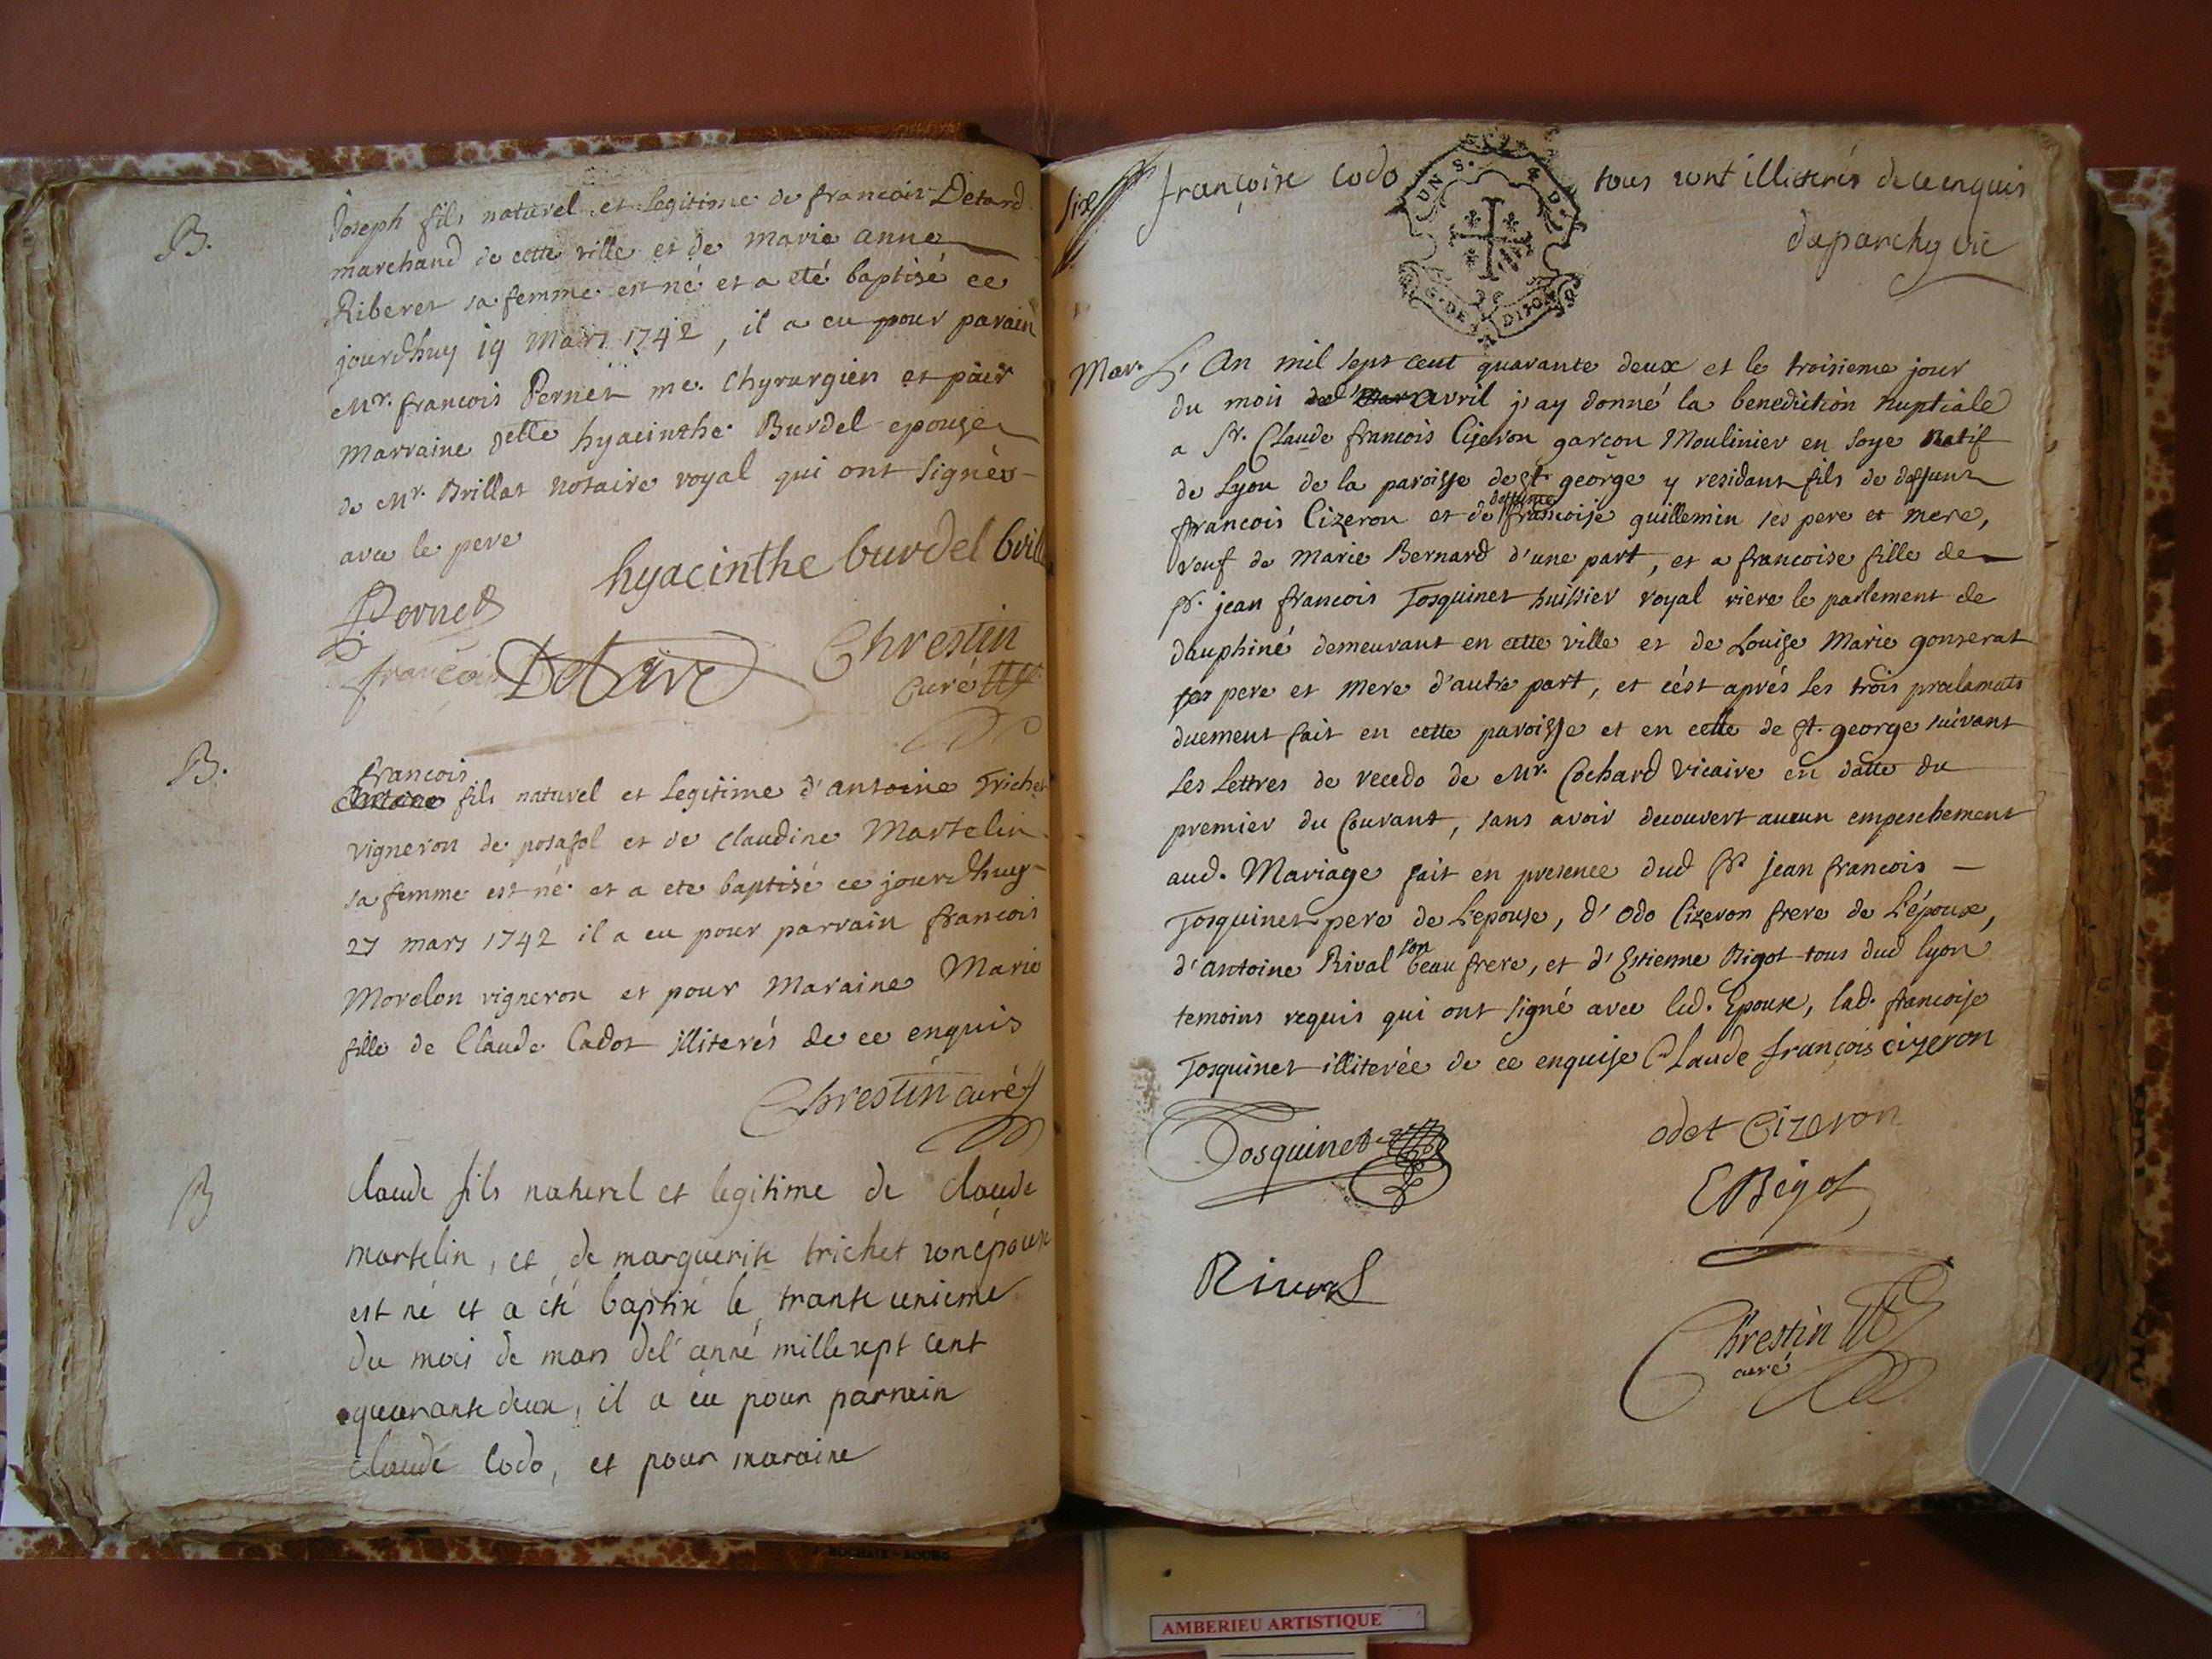 B.
Joseph fils naturel et legitime de francois Detard
marchand de cette ville et de marie anne
Riberet sa femme est né et a eté baptisé ce
jourdhuy 19 Mars 1742, il a eu pour parain
Mr. francois Pernet me. Chyrurgien et pour
marraine delle hyacinthe Burdel epouse
de Mr. Brillat notaire royal qui ont signés
avec le pere
hyacinthe burdel brill
Pernet
francois
Chrestin
curé
B.
francois
fils naturel et legitime d'antoine Trichet
vigneron de posafol et de claudine Martelin
sa femme est né et a ete baptisé ce jourdhuy
27 mars 1742 il a eu pour parrain francois
Morelon vigneron et pour Maraine Marie
fille de Claude Cadot illiterés de ce enquis
Chrestin curé
B
Claude fils naturel et legitime de Claude
martelin, et de marguerite trichet son épouse
est né et a été baptisé le trante unieme
du mois de mars del'anné mille sept cent
quarante deux, il a eu pour parrain
Claude Codo, et pour maraine
six
françoise Codo tous sont illiterés de ce enquis
duparchy vic
UNS.
G. DE DIJON
Mar. L'An mil sept cent quarante deux et le troisieme jour
du mois avril j'ay donné la benediction nuptiale
a Sr. Claude francois Cizeron garcon Moulinier en soye natif
de Lyon de la paroisse de St. george y residant fils de deffunt
deffunte
francois Cizeron et de francoise guillemin ses pere et mere,
veuf de Marie Bernard d'une part, et a francoise fille de
Sr. jean francois Tosquinet huissier royal riere le parlement de
dauphiné demeurant en cette ville et de Louise Marie gonserat
ses pere et mere d'autre part, et c'est aprés les trois proclamats
duement fait en cette paroisse et en celle de St. george suivant
les lettres de recedo de Mr. Cochard vicaire en datte du
premier du Courant, sans avoir decouvert aucun empeschement
aud. Mariage fait en presence dud Sr. jean francois
Tosquinet pere de L'epouse, d'Odo Cizeron frere de L'époux,
son
d'antoine Rival beau frere, et d'Estienne Bigot tous dud lyon
temoins requis qui ont signé avec led. Epoux, lad. francoise
Tosquinet illiterée de ce enquise Claude françois cizeron
Tosquinet
odet Cizeron
EBigot
Rival
Chrestin
curé
AMBERIEU ARTISTIQUE